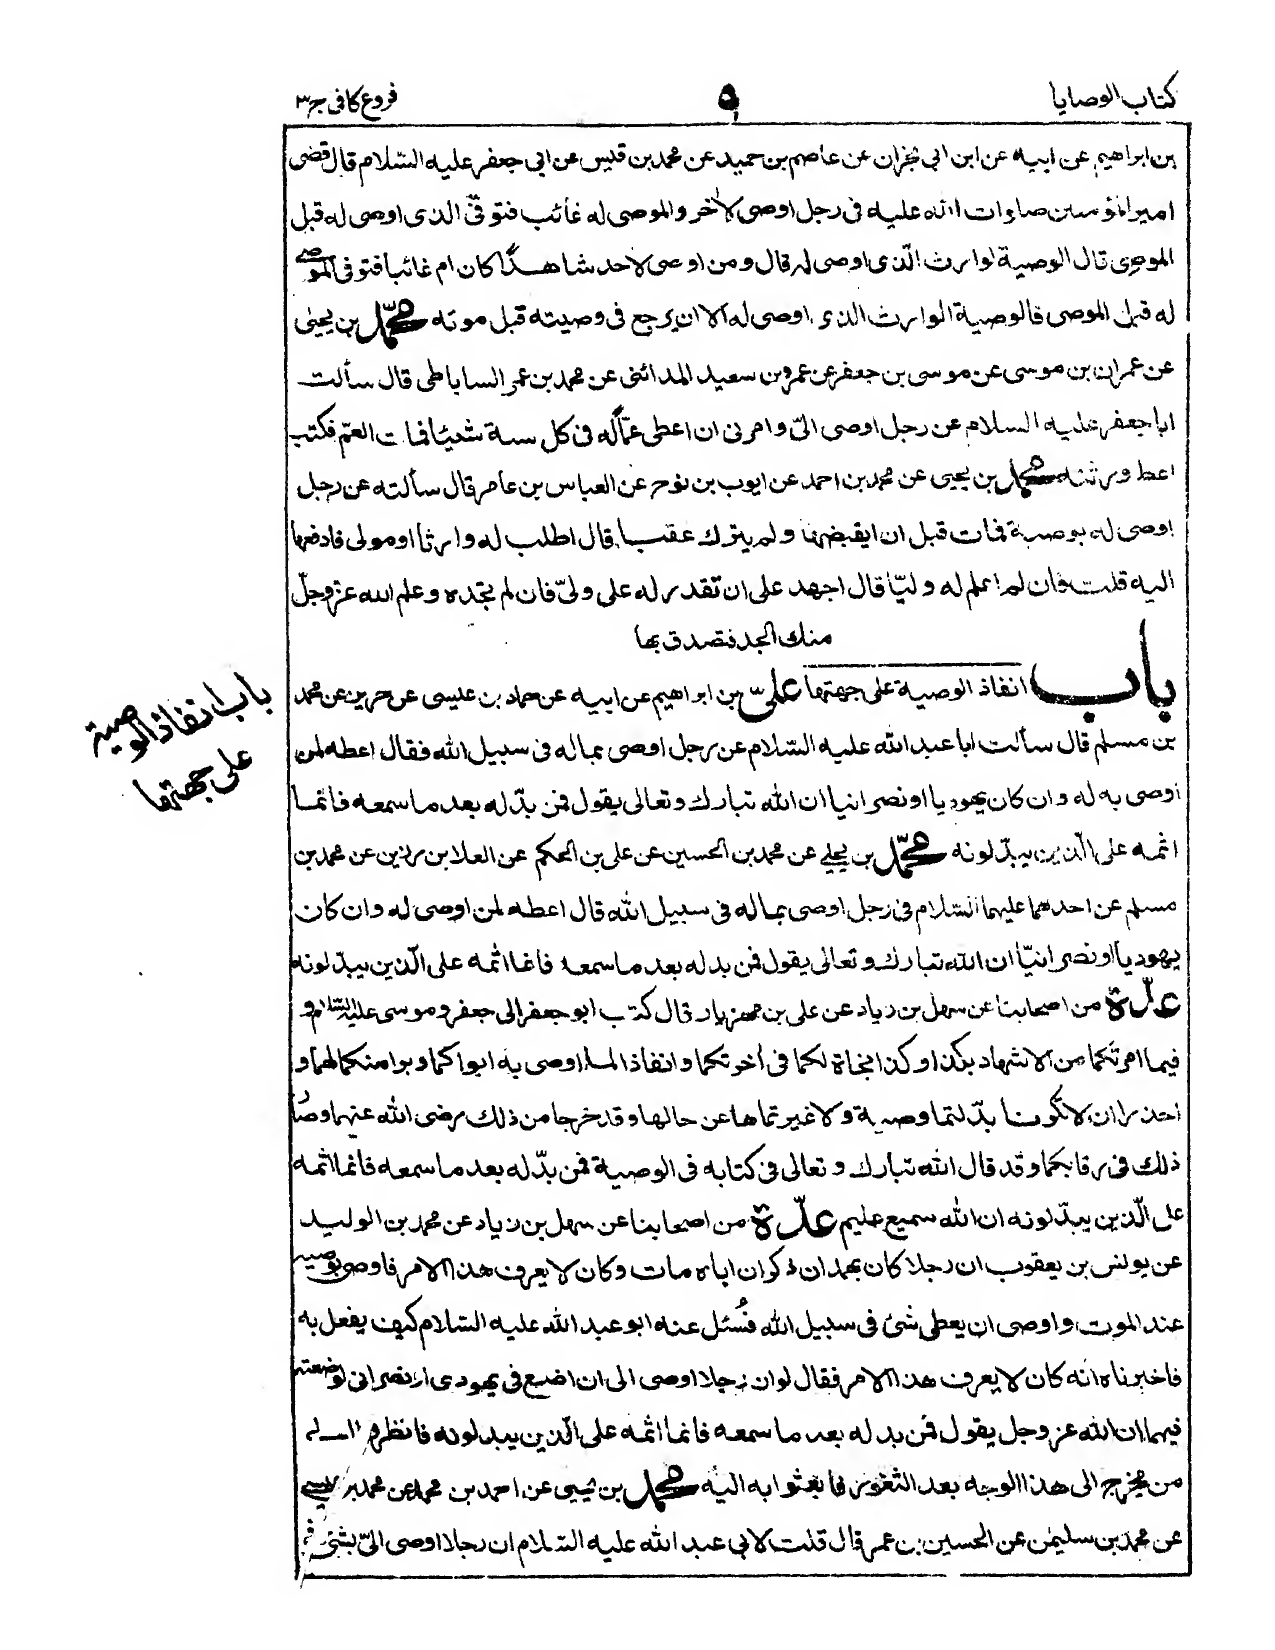 كتاب الوصايا
٥
فروع كافى ج ٣
بن ابراهيم عن ابيه عن ابن ابى نجران عن عاصم بن حميد عن محمد بن قيس عن ابى جعفر عليه السّلام قال قضى
امير المؤمنين صلوات الله عليه فى رجل اوصى لاخر والموصى له غائب فتوفّى الذى اوصى له قبل
الموصى قال الوصية لوارث الّذى اوصى له قال ومن اوصى لاحد شاهدًا كان ام غائبا فتوفى الموصى
له قبل الموصى فالوصية الوارث الذى اوصى له الا ان يرجع فى وصيته قبل موته محمّد بن يحيى
عن عمران بن موسى عن موسى بن جعفر عن عمرو بن سعيد المدائنى عن محمد بن عمر الساباطى قال سألت
ابا جعفر عليه السلام عن رجل اوصى الىّ وامرنى ان اعطى عمّاً له فى كل سنة شيئا فمات العمّ فكتب
اعط ورثته محمد بن يحيى عن محمد بن احمد عن ايوب بن نوح عن العباس بن عامر قال سألته عن رجل
اوصى له بوصية فمات قبل ان ايقبضها ولم يترك عقبا قال اطلب له وارثا او مولى فادفعها
اليه قلت فان لم اعلم له وليّا قال اجهد على ان تقدر له على ولىّ فان لم تجده وعلم الله عزّ وجلّ
منك الجد فتصدق بها
باب انفاذ الوصية على جهتها علىّ بن ابراهيم عن ابيه عن حماد بن عليسى عن حريز عن محمد
بن مسلم قال سألت ابا عبد الله عليه السّلام عن رجل اوصى بماله فى سبيل الله فقال اعطه لمن
اوصى به له وان كان يهوديا او نصرانيا ان الله تبارك وتعالى يقول فمن بدّله بعد ما سمعه فانّما
اثمه على الّذين يبدّلونه محمّد بن يحيى عن محمد بن الحسين عن على بن الحكم عن العلا بن رزين عن محمد بن
مسلم عن احدهما عليهما السّلام فى رجل اوصى بماله فى سبيل الله قال اعطه لمن اوصى له وان كان
يهوديا او نصرانيّا ان الله تبارك وتعالى يقول فمن بدله بعد ما سمعه فانما اثمه على الّذين يبدلونه
عدّة من اصحابنا عن سهل بن زياد عن على بن مهزيار قال كتب ابو جعفر الى جعفر وموسى عليه السّلام و
فيما امرتكما من الاشهاد بكذا وكذا نجاة لكما فى أخرتكما وانفاذا لما اوصى به ابواكما وبرا منكما لهما و
احذرا ان لا تكونا بدّلتما وصية ولا غيرتماها عن حالها وقد خرجا من ذلك رضى الله عنهما وصُا
ذلك فى رقابكما وقد قال الله تبارك وتعالى فى كتابه فى الوصية فمن بدّله بعد ما سمعه فانما اثمه
على الّذين يبدّلونه ان الله سميع عليم عدّة من اصحابنا عن سهل بن زياد عن محمد بن الوليد
عن يونس بن يعقوب ان رجلا كان بهمدان ذكر ان اباه مات وكان لا يعرف هذا الامر فاوصى بوصيه
عند الموت واوصى ان يعطى شئ فى سبيل الله فسُئل عنه ابو عبد الله عليه السّلام كيف يفعل به
فاخبرناه انه كان لا يعرف هذا الامر فقال لو ان رجلا اوصى الى ان اضع فى يهودى او نصرانى لوضعته
فيهما ان الله عز وجل يقول فمن بدله بعد ما سمعه فانما اثمه على الّذين يبدلونه فانظروا الى
من يخرج الى هذا الوجه بعد الثغور فابعثوا به اليه محمد بن يحيى عن احمد بن محمد عن محمد بن عيسى
عن محمد بن سليمن عن الحسين بن عمر قال قلت لابى عبد الله عليه السّلام ان رجلا اوصى الىّ بشئ فى
باب انفاذ الوصية
على جهتها